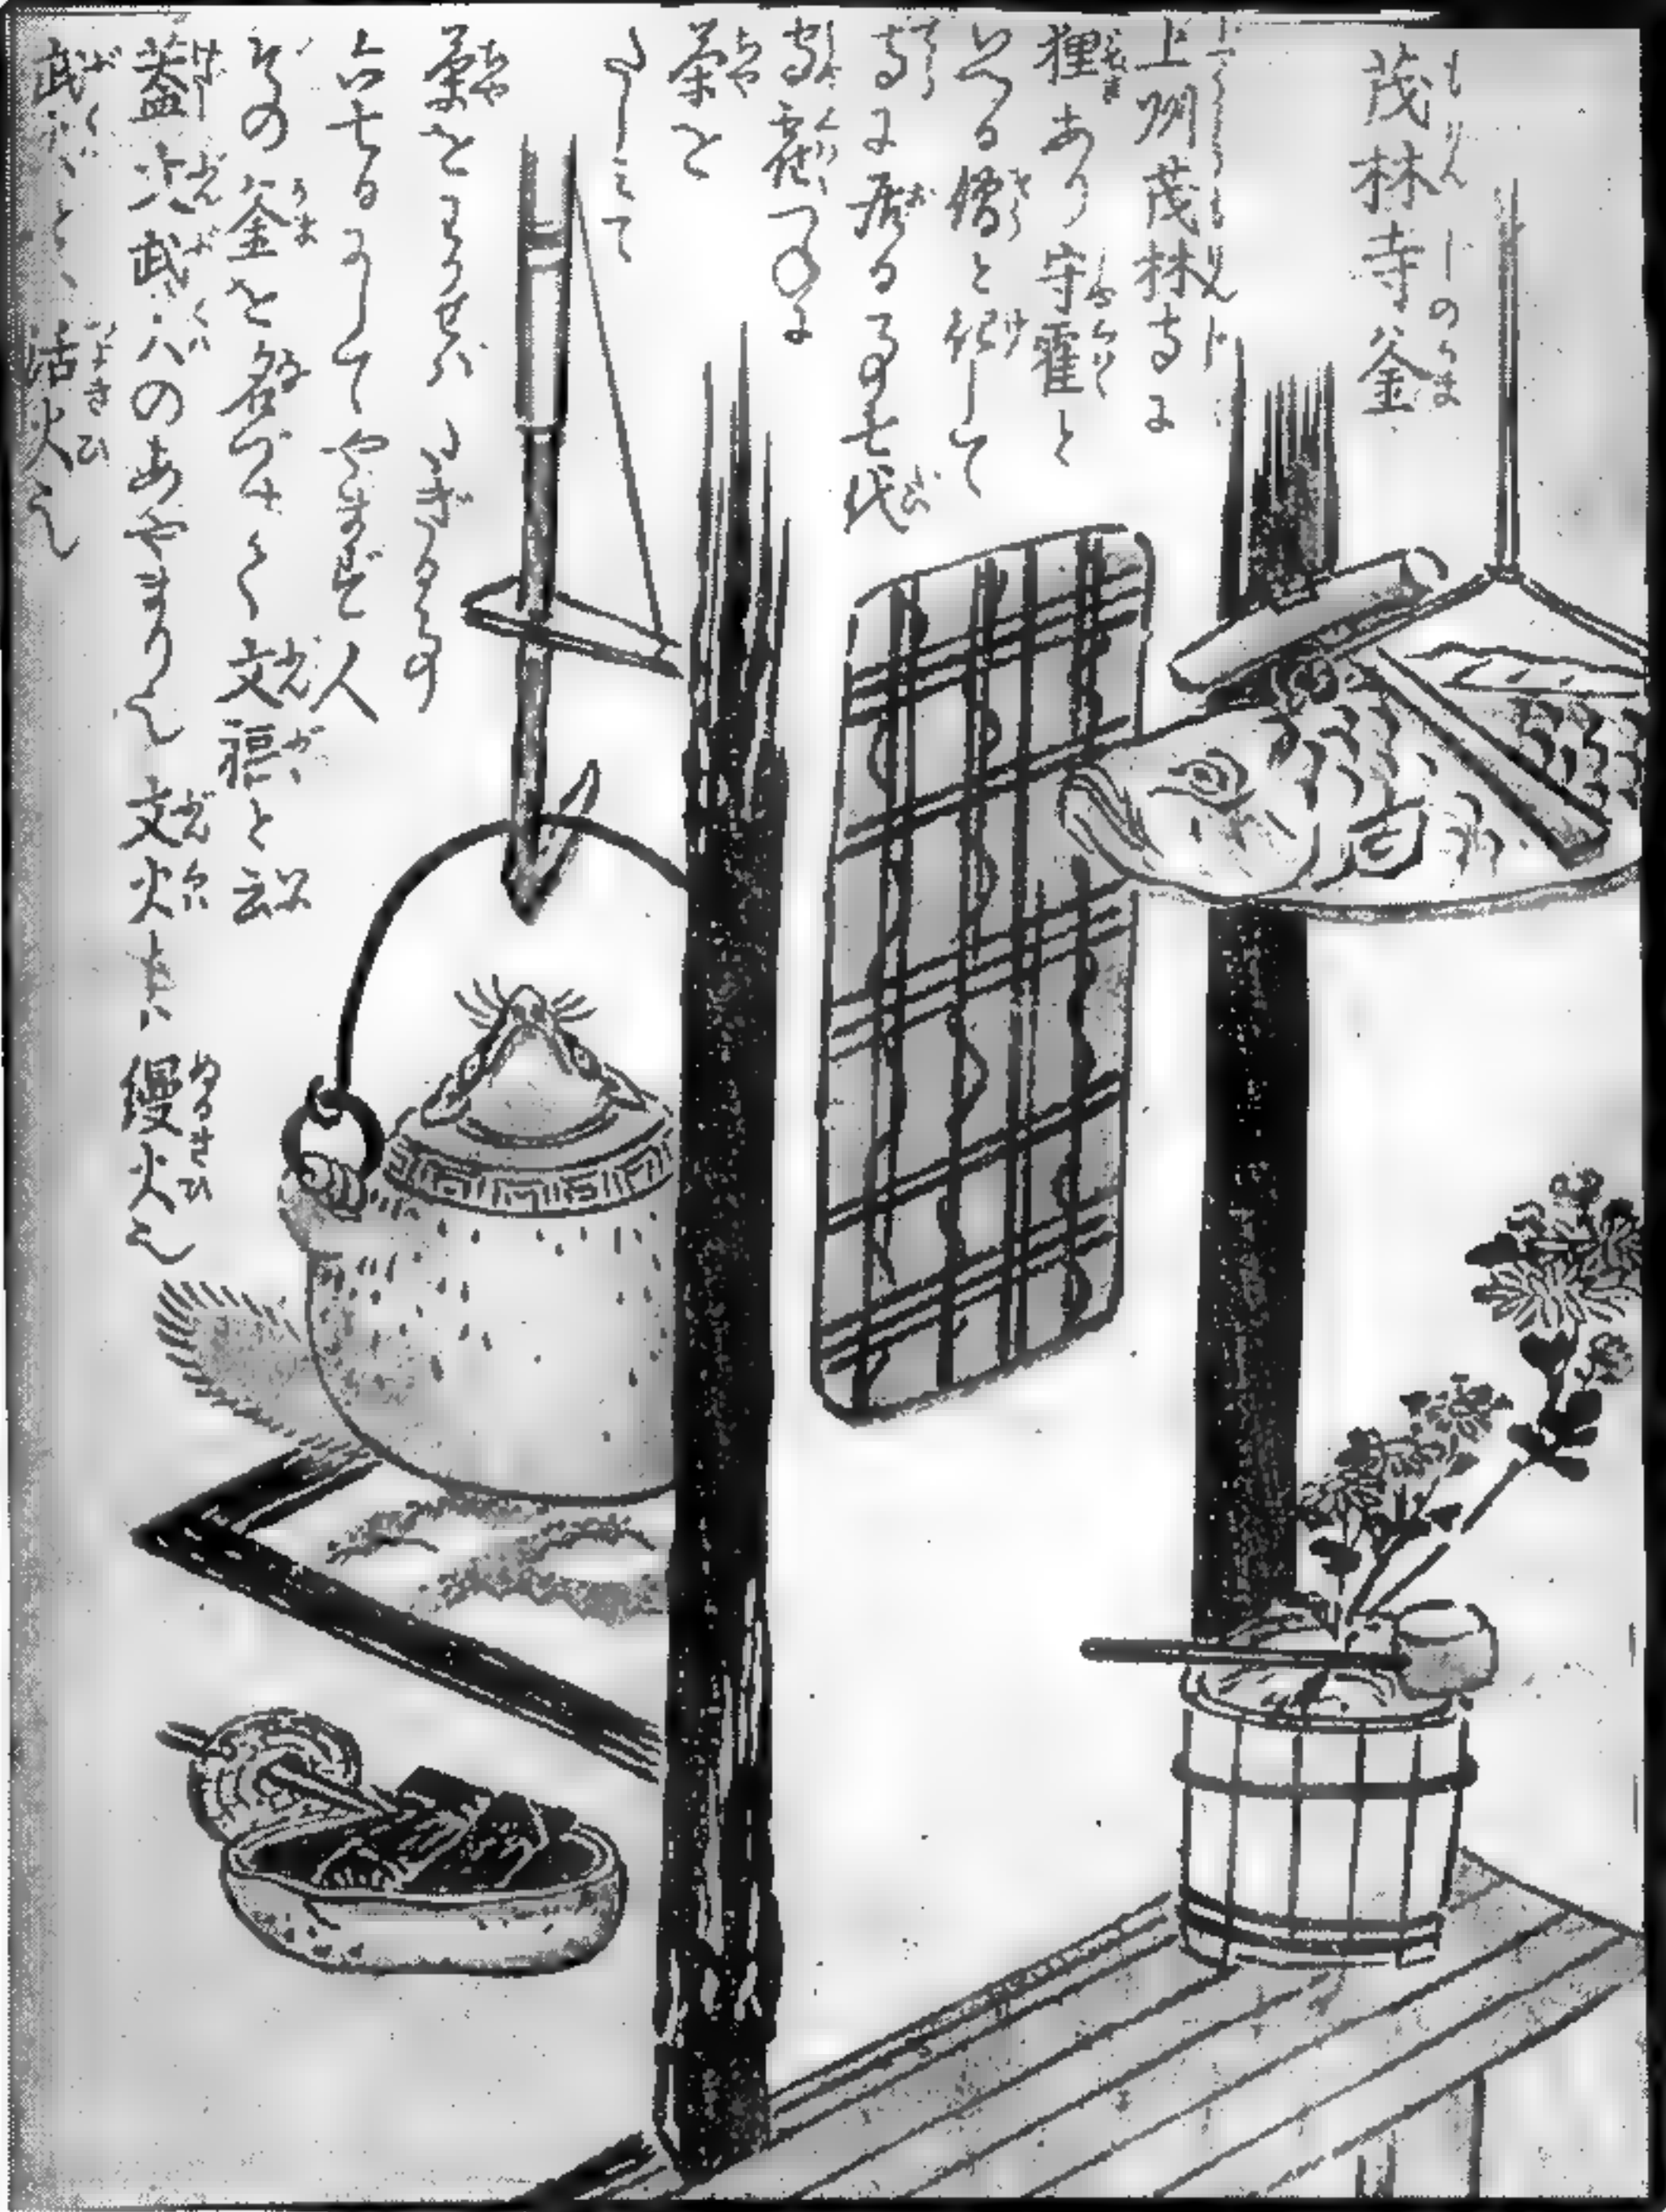 茂林寺釜
上州茂林寺に
狸あり守霍と
いへる僧と化して
寺に居る事七代
守霍つねに
茶を
たしみて
茶をわかせばたぎる事
六七日にしてやまず人
その釜を名づけて文福と云
蓋文武火のあやまり也文火とは縵火也
武火とは活火也